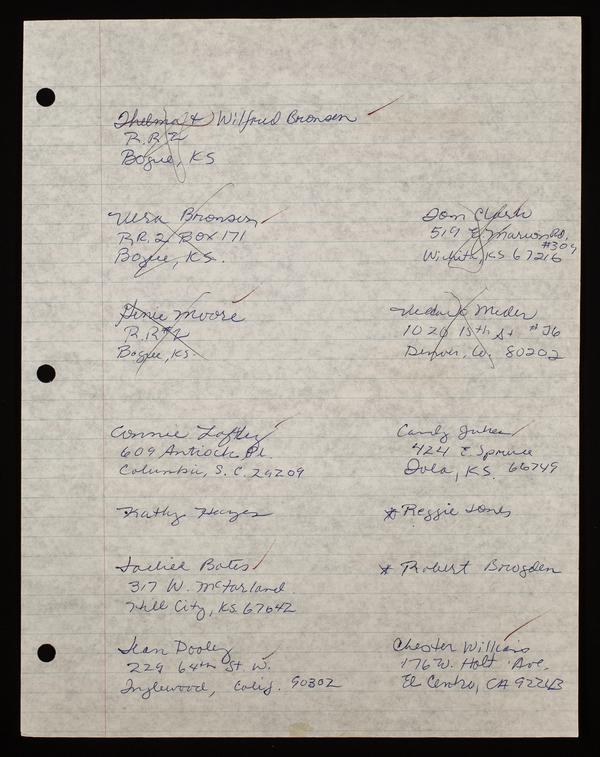 Thelma & Wilfred Bronson
R.R 2
Bogue, KS
Vera Bronson
R.R. 2 Box 171
Bogue, KS.
Don Clark
519 E Marion Rd,
#304
Wichita, KS 67216
Genie Moore
R.R #2
Bogue, KS.
Meder
1020 15th St #J6
Denver, Co. 80202
Connie Loftley
609 Antioch Pl.
Columbia, S. C. 29209
Candy Jukes
424 E Spruce
Iola, KS. 66749
Kathy Hayes
* Reggie Jones
Bates
317 W. McFarland
Hill City, KS. 67642
* Robert Brogden
Jean Dooley
229 64th St W.
Inglewood, Calif. 90302
Chester Williams
176 W. Holt Ave,
El Centro, CA 92243